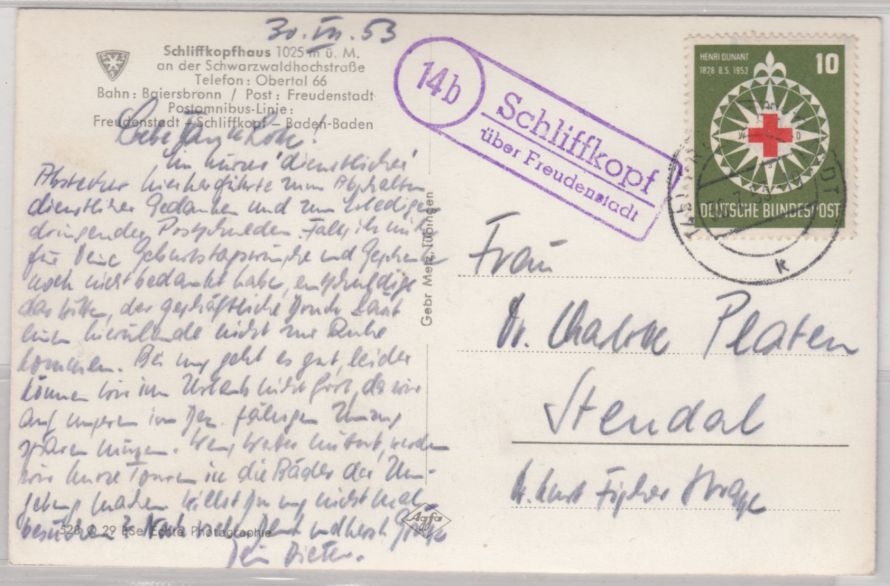 30. VII. 53
Schliffkopfhaus 1025 m ü. M.
an der Schwarzwaldhochstraße
Telefon: Obertal 66
Bahn: Baiersbronn / Post: Freudenstadt
Postomnibus-Linie:
Freudenstadt – Schliffkopf – Baden-Baden
14b
Schliffkopf
über Freudenstadt
HENRI DUNANT
1828 8.5. 1953
10
DEUTSCHE BUNDESPOST
K
Liebe
Ein kurzer "dienstlicher"
Abstecher hierher führte zum Abhalten
dienstlicher Gedanken und zum Erledigen
dringender Fall ich mich
für Deine Geburtstagswünsche und
noch nicht bedankt habe, entschuldige
das bitte, der geschäftliche
mich hierzulande nicht zur Ruhe
kommen. Bei uns geht es gut, leider
können wir im Urlaub nicht fort, da wir
auf unseren im Umzug
sparen müssen. Wenn Wetter werden
wir kurze Touren in die Bäder der Um-
gebung machen. Willst Du uns nicht mal
besuchen? und herzl. Grüße
Dein Dieter.
Gebr. Metz, Tübingen
Agfa
Echte Photographie
Frau
Dr. Platen
Stendal
Dr. Kurt Fischer Straße